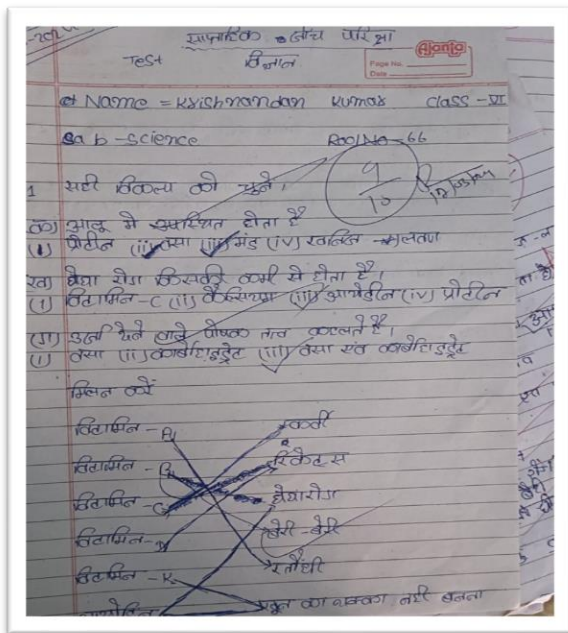 साप्ताहिक जाँच परिक्षा
Test विज्ञान
Ajanta
Page No.
Date
Name = Krishnandan Kumar Class - VI
Sab - Science Roll No - 66
9/10
1 सही विकल्प को चुने।
(क) आलू मे उपस्थित होता है
(i) प्रोटीन (ii) वसा (iii) मंड (iv) खनिज - लवण
(ख) घेघा रोग किसकी कमी से होता है।
(i) विटामिन - C (ii) कैल्सियम (iii) आयोडीन (iv) प्रोटीन
(ग) उर्जा देने वाले पोषक तत्व कहलते है।
(i) वसा (ii) कार्बोहाइड्रेट (iii) वसा एवं कार्बोहाइड्रेट
मिलान करें
विटामिन - A स्कर्वी
विटामिन - B रिकेट्स
विटामिन - C घेघारोग
विटामिन - D बेरी - बेरी
विटामिन - K रतौंधी
आयोडिन खून का थक्का नही बनना